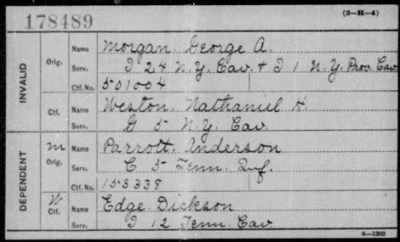 178489
(3-H-4)
INVALID
Orig.
Name Morgan George A.
Serv. I 24 N.Y. Cav & I 1 N.Y. Prov. Cav
Ctf. No. 501004
Ctf.
Name Weston Nathaniel H
Serv. G 5 N.Y. Cav
DEPENDENT
m
Orig.
Name Parrott Anderson
Serv. C 5 Tenn. Inf.
Ctf. No. 153338
W
Ctf.
Name Edge Dickson
Serv. I 12 Tenn. Cav